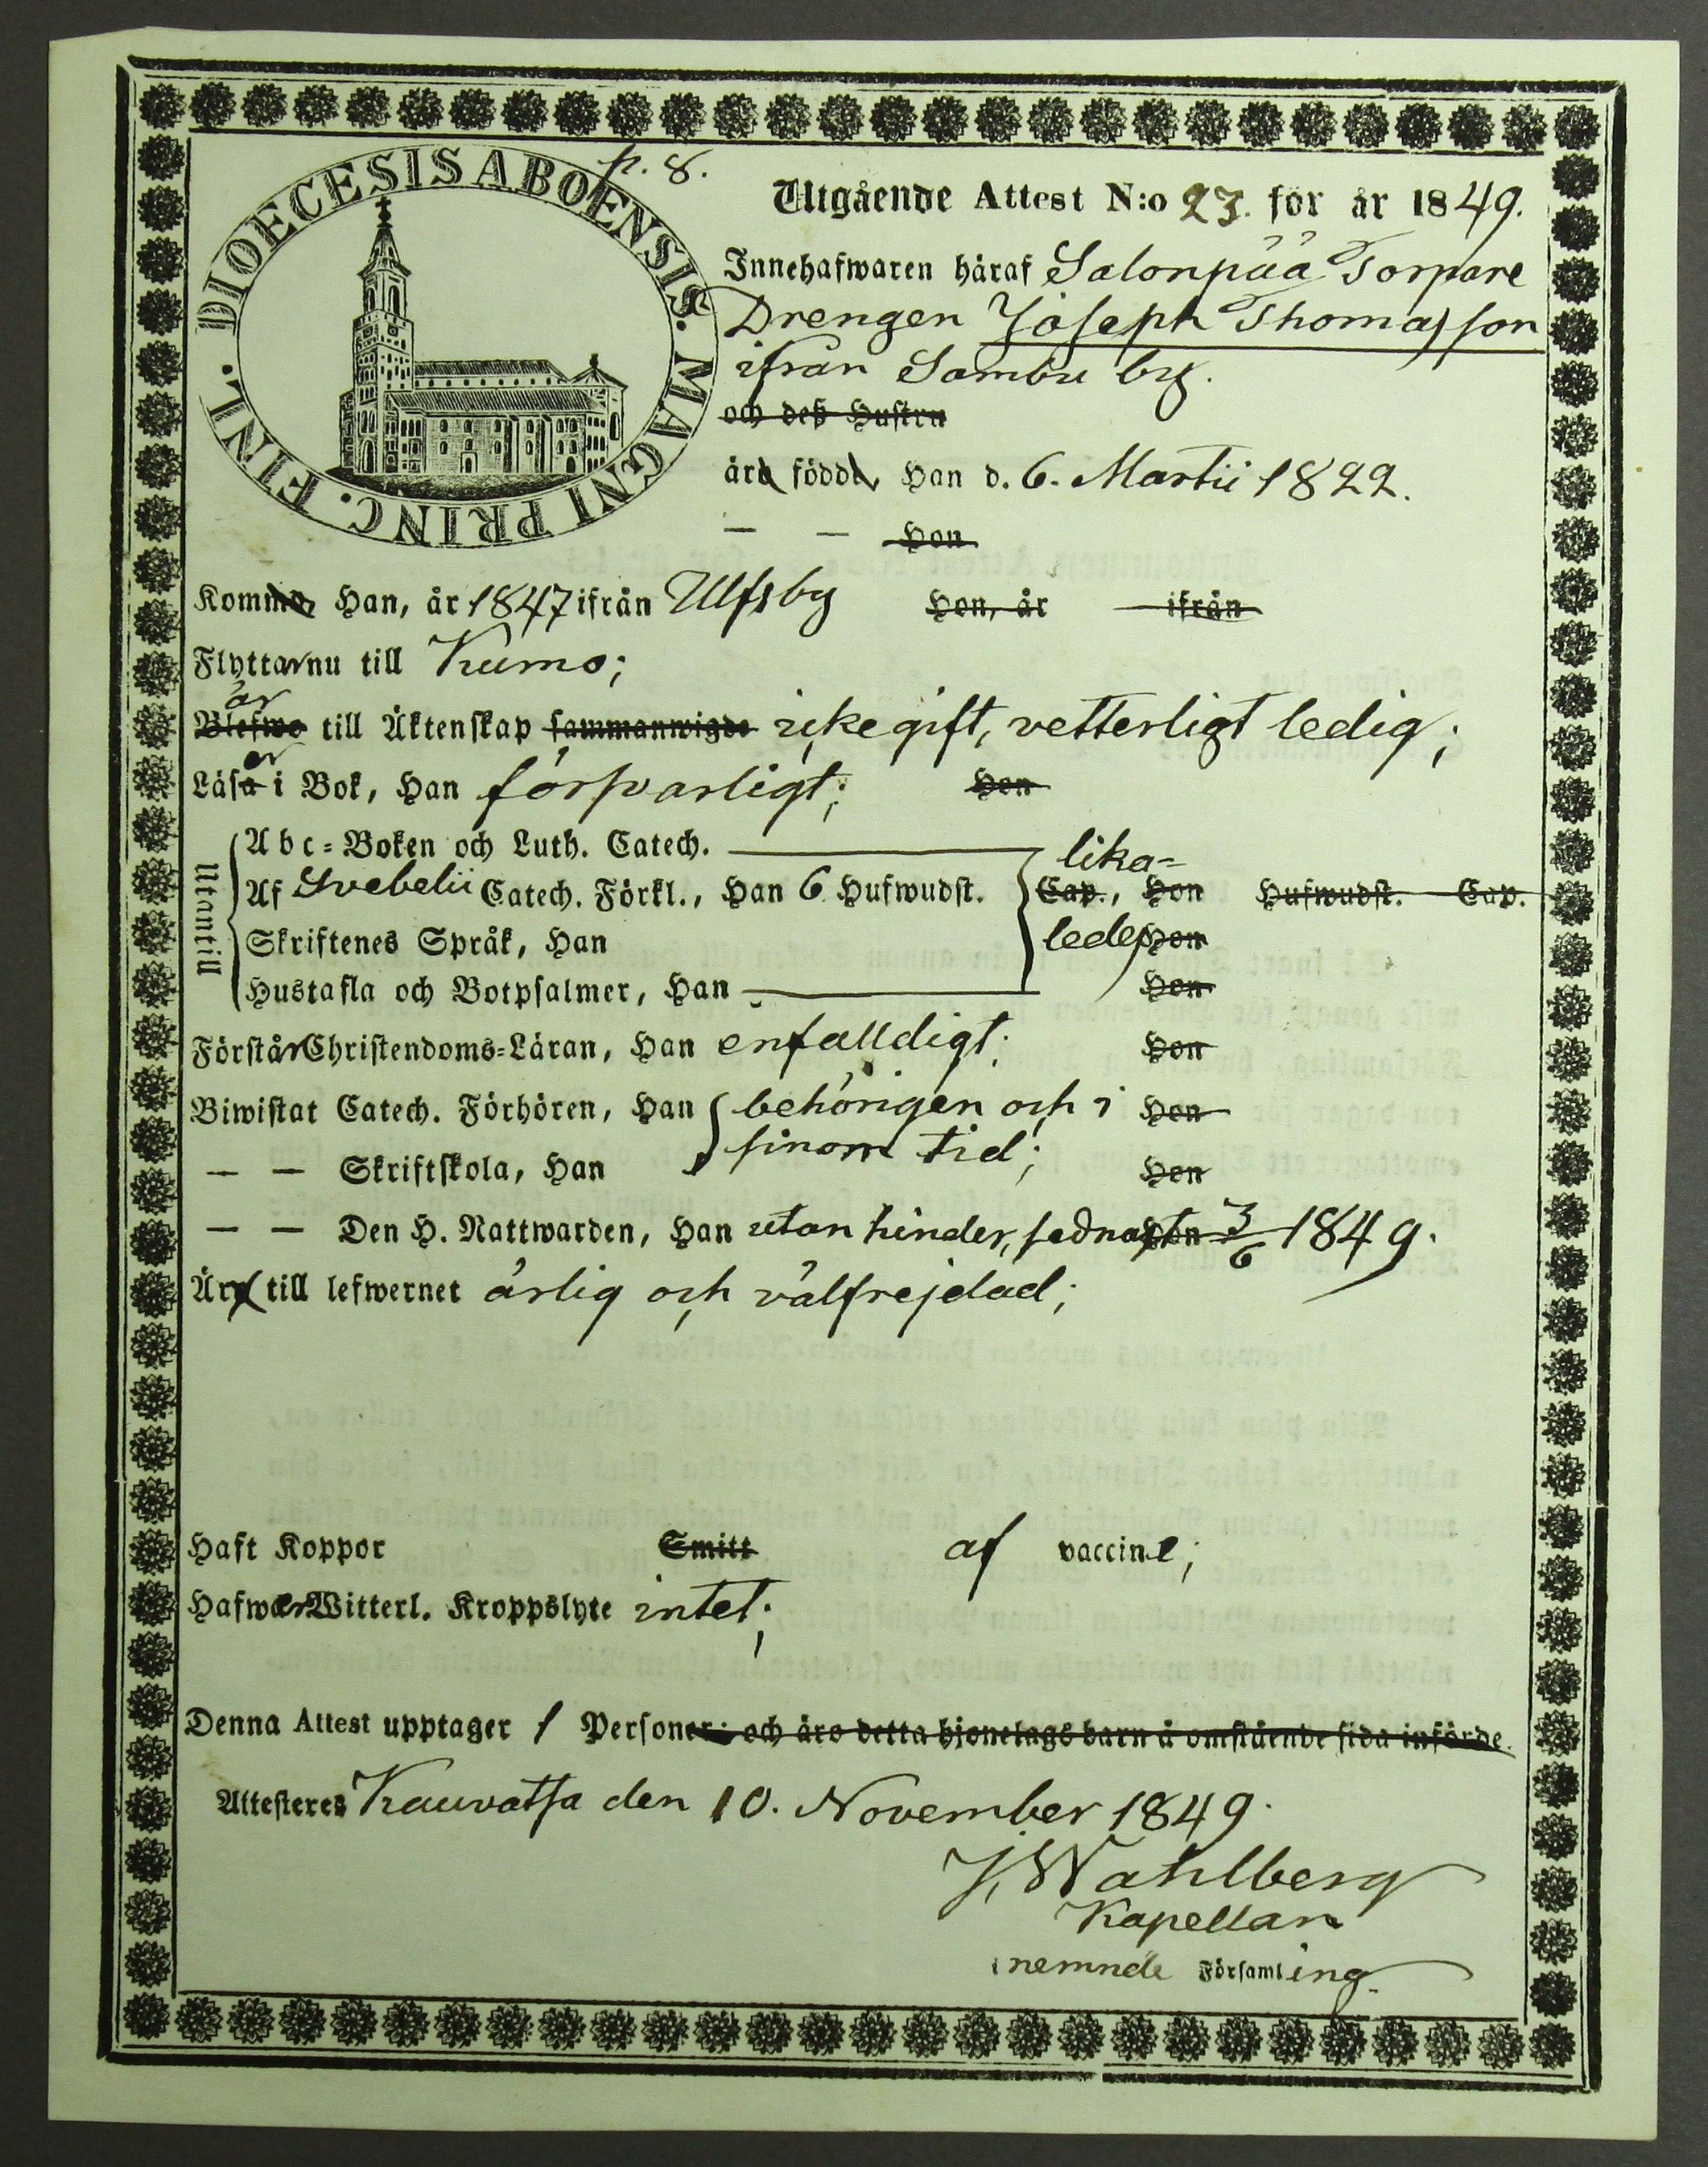 DIOECESIS ABOENSIS. MAGNI PRINC. FINL.
p. 8.
Utgående Attest N:o 23. för år 1849.
Innehafwaren häraf Salonpää Torpare
Drengen Joseph Thomasson
ifrån Sambu by.
och deß Hustru
äro födde, Han d. 6. Martii 1822.
— — Hon
Komma Han, år 1847 ifrån Ulfsby Hon, år ifrån
Flyttar nu till Kumo;
är
Blefwo till Äktenskap sammanwigde icke gift, vetterligt ledig;
er
Läsa i Bok, Han försvarligt; Hon
Utantill
Abc-Boken och Luth. Catech. lika-
Af Svebelii Catech. Förkl., Han 6 Hufwudst. Cap., Hon Hufwudst. Cap.
Skriftenes Språk, Han ledes Hon
Hustafla och Botpsalmer, Han Hon
Förstår Christendoms-Läran, Han enfalldigt; Hon
Biwistat Catech. Förhören, Han behörigen och i Hon
— — Skriftskola, Han sinom tid; Hon
— — Den H. Nattwarden, Han utan hinder, sednast Hon 3/6 1849.
Äro till lefwernet ärlig och välfrejdad;
Haft Koppor Smitt af vaccine;
Hafwer Witterl. Kroppslyte intet;
Denna Attest upptager 1 Personer; och äro detta hjonelags barn å omstående sida införde.
Attesteres Kauvatsa den 10. November 1849.
J. Wahlberg
Kapellan
i nemnde Församling.